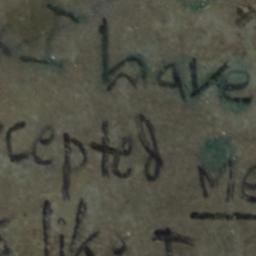 I have
ccepted Me
like I